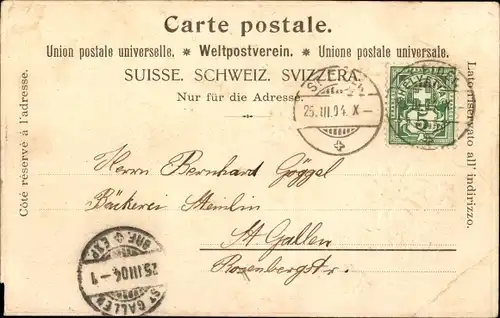 Carte postale.
Union postale universelle. * Weltpostverein. * Unione postale universale.
SUISSE. SCHWEIZ. SVIZZERA.
Nur für die Adresse.
Côté réservé à l'adresse.
Lato riservato all' indirizzo.
25.III.04. X–
HELVETIA
5
Herrn Bernhard Göggel
Bäckerei Stemlin
St. Gallen
Rosenbergstr.
BRF. & EXP.
25 III 04 – 1
ST GALLEN